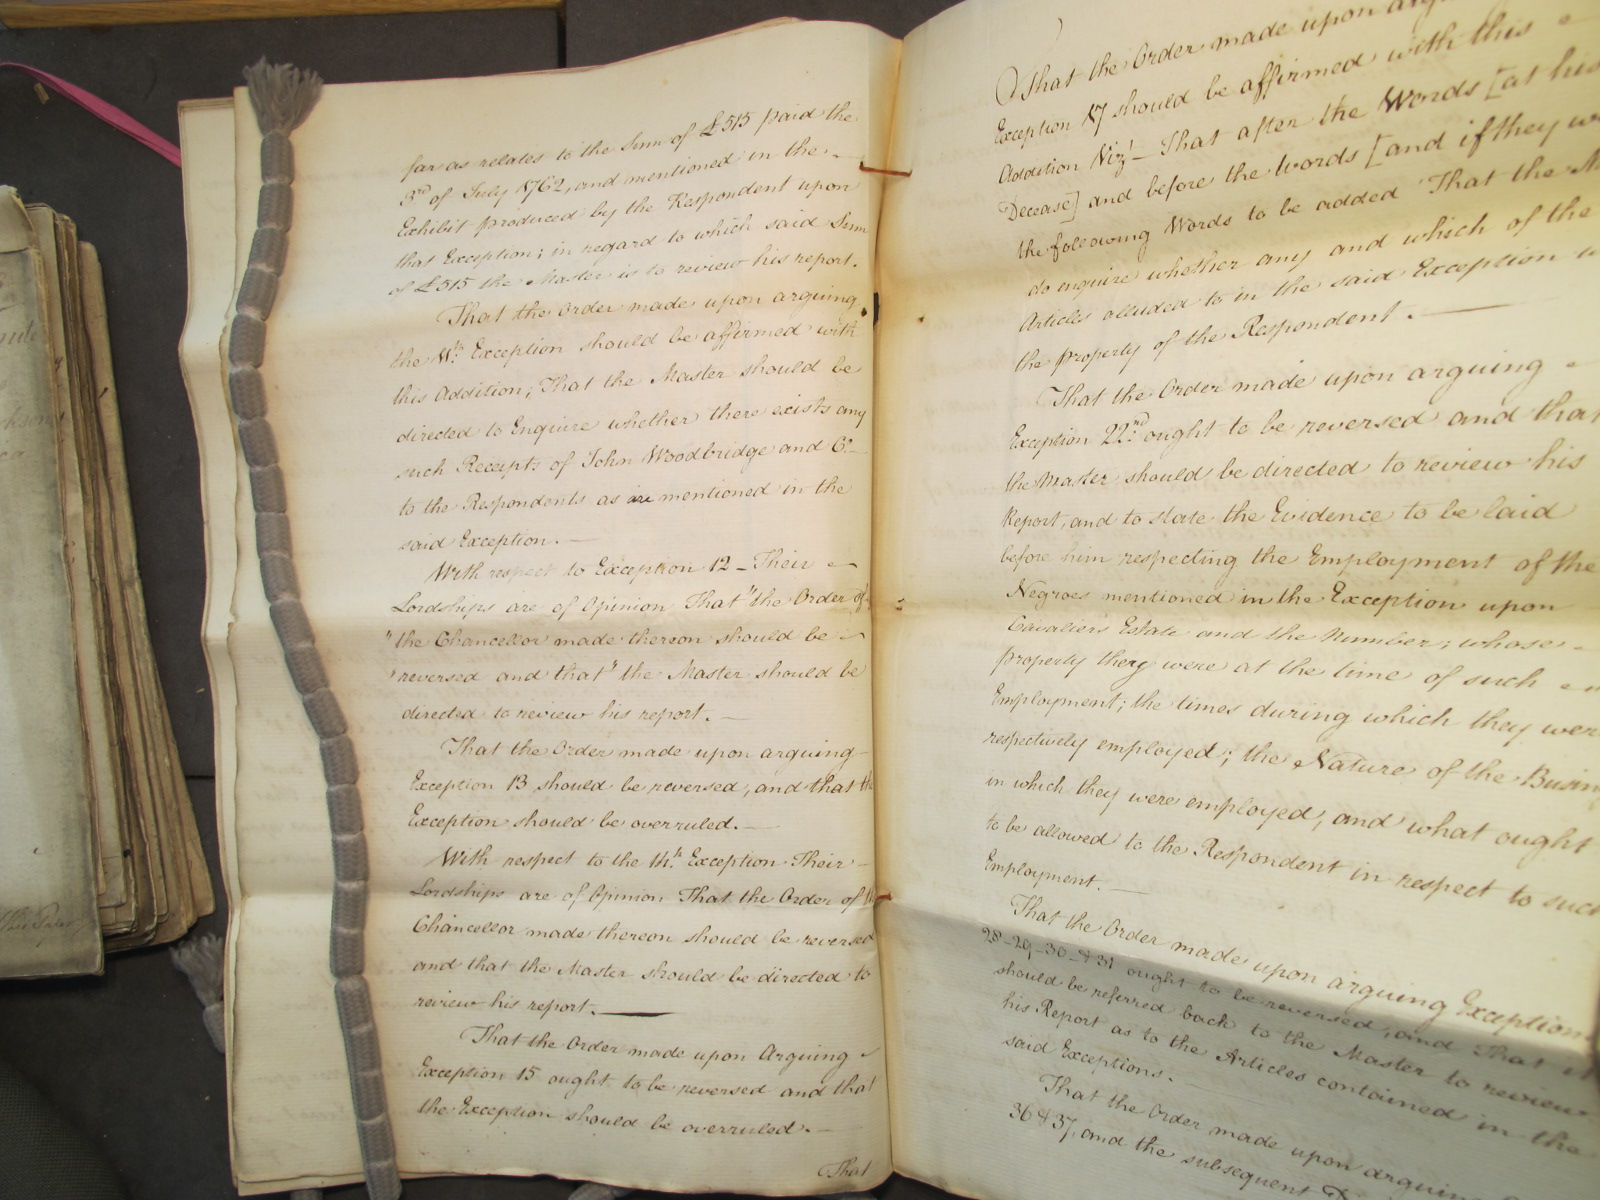 far as relates to the Sum of £515 paid the
3rd of July 1762, and mentioned in the
Exhibit produced by the Respondent upon
that Exception; in regard to which said Sum
of £515 the Master is to review his report.
That the Order made upon arguing
the 11th Exception should be affirmed with
this Addition; That the Master should be
directed to Enquire whether there exists any
such Receipts of John Woodbridge and Co.
to the Respondents as are mentioned in the
said Exception.
With respect to Exception 12 - Their
Lordships are of Opinion That "the Order of
"the Chancellor made thereon should be
"reversed and that" the Master should be
directed to review his report.
That the Order made upon arguing
Exception 13 should be reversed, and that the
Exception should be overruled.
With respect to the 14th Exception Their
Lordships are of Opinion That the Order of the
Chancellor made thereon should be reversed
and that the Master should be directed to
review his report.
That the Order made upon Arguing
Exception 15 ought to be reversed and that
the Exception should be overruled.
That
That the Order made upon
Exception 17 should be affirmed with this
Addition Vizt - That after the Words [at his
Decease] and before the Words [and if they
the following Words to be added That the
do enquire whether any and which of the
Articles alluded to in the said Exception
the property of the Respondent.
That the Order made upon arguing
Exception 22nd ought to be reversed and that
the Master should be directed to review his
Report, and to state the Evidence to be laid
before him respecting the Employment of the
Negroes mentioned in the Exception upon
Cavaliers Estate and the Number; whose
property they were at the time of such
Employment; the times during which they were
respectively employed; the Nature of the Busin
in which they were employed, and what ought
to be allowed to the Respondent in respect to such
Employment.
That the Order made upon arguing Exception
28-29-30-&31 ought to be reversed, and That it
should be referred back to the Master to review
his Report as to the Articles contained in the
said Exceptions.
That the Order made upon arguing
36 & 37, and the subsequent